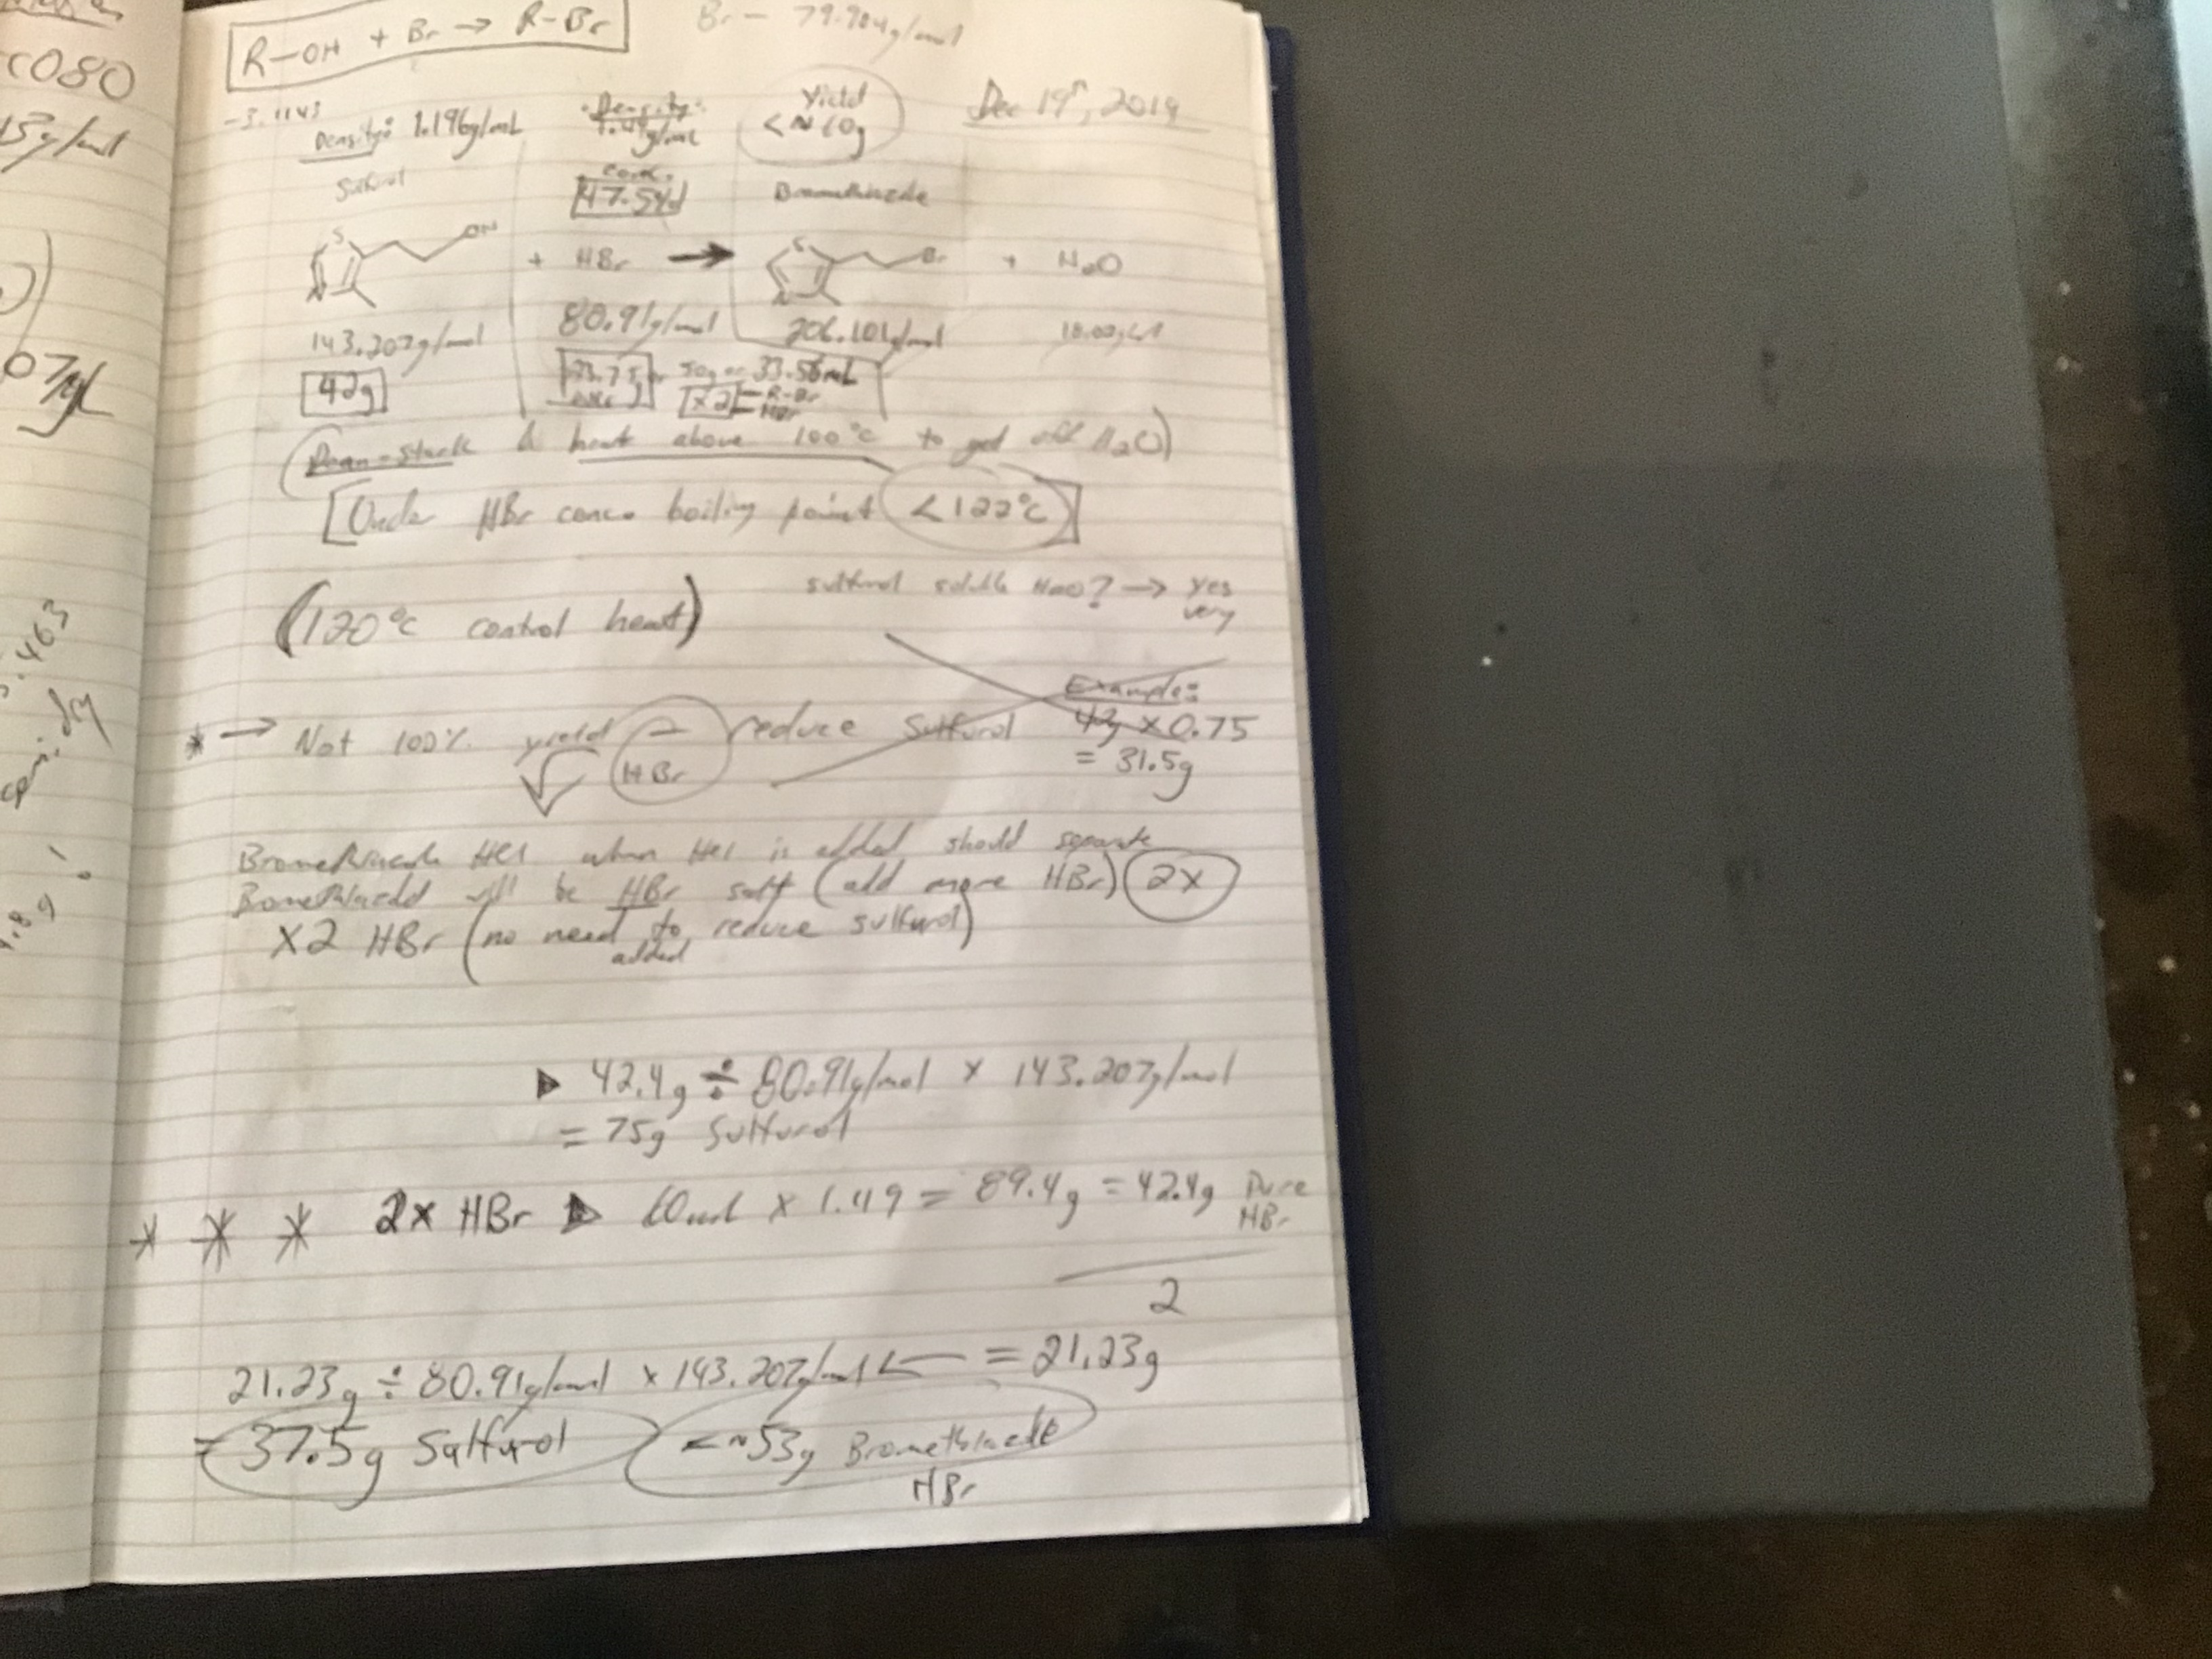 R-OH + Br → R-Br
Br - 79.904g/mol
-3.1143
Dec 19th, 2019
Density: 1.196g/mL
Density:
1.49g/mL
Yield
< ~60g
Sulfurol
conc.
47.5%
Bromethiazole
S
OH
N
+ HBr →
S
Br
N
+ H2O
143.207g/mol
80.91g/mol
206.101g/mol
42g
23.75g
50g or 33.56mL
x2 = R-Br
= HBr
(Dean-Stark & heat above 100°C to get off H2O)
[Under HBr conc. boiling point <122°C]
(120°C control heat)
sulfurol soluble H2O? → yes
very
Example:
* → Not 100% yield - reduce Sulfurol
HBr
42g x 0.75
= 31.5g
HCl when HCl is added should separate
will be HBr salt (add more HBr) 2x
x2 HBr (no need to reduce sulfurol)
added
▶ 42.4g ÷ 80.91g/mol x 143.207g/mol
= 75g Sulfurol
* * * 2x HBr ▶ 60mL x 1.49 = 89.4g = 42.4g Pure
HBr
2
21.23g ÷ 80.91g/mol x 143.207g/mol ← = 21.23g
= 37.5g Sulfurol
< ~53g Bromethiazole
HBr